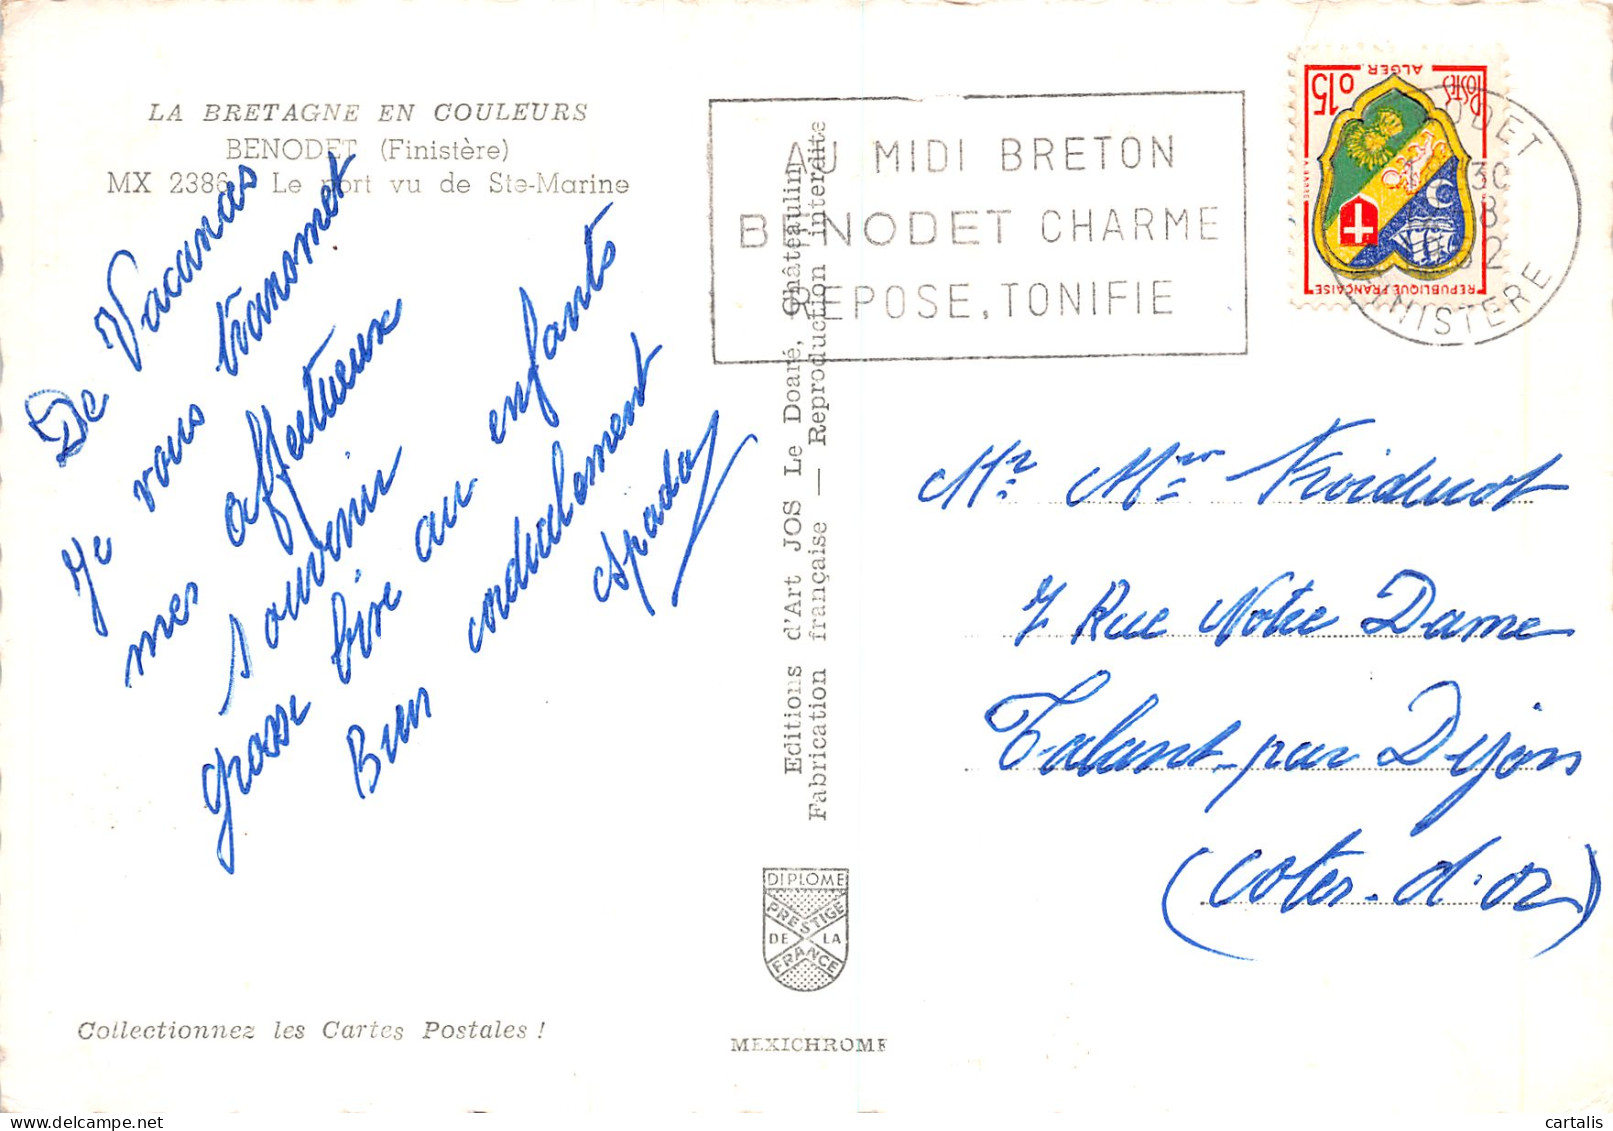 LA BRETAGNE EN COULEURS
BENODET (Finistère)
MX 2386 Le port vu de Ste-Marine
De Vacanas
Je vous transmet
mes affectueux
souvenir
grosse bise au enfants
Bien cordialement
Spada
Editions d'Art JOS Le Doaré, Châteaulin
Fabrication française — Reproduction interdite
AU MIDI BRETON
BENODET CHARME
REPOSE, TONIFIE
POSTES
ALGER
0,15
REPUBLIQUE FRANÇAISE
ODET
30
8
1962
FINISTERE
Mr. Mme Froidurot
7 Rue Notre Dame
Talant-par Dijon
(Cotes-d'or)
DIPLOME
PRESTIGE
DE LA
FRANCE
Collectionnez les Cartes Postales !
MEXICHROME
cartalis
www.delcampe.net